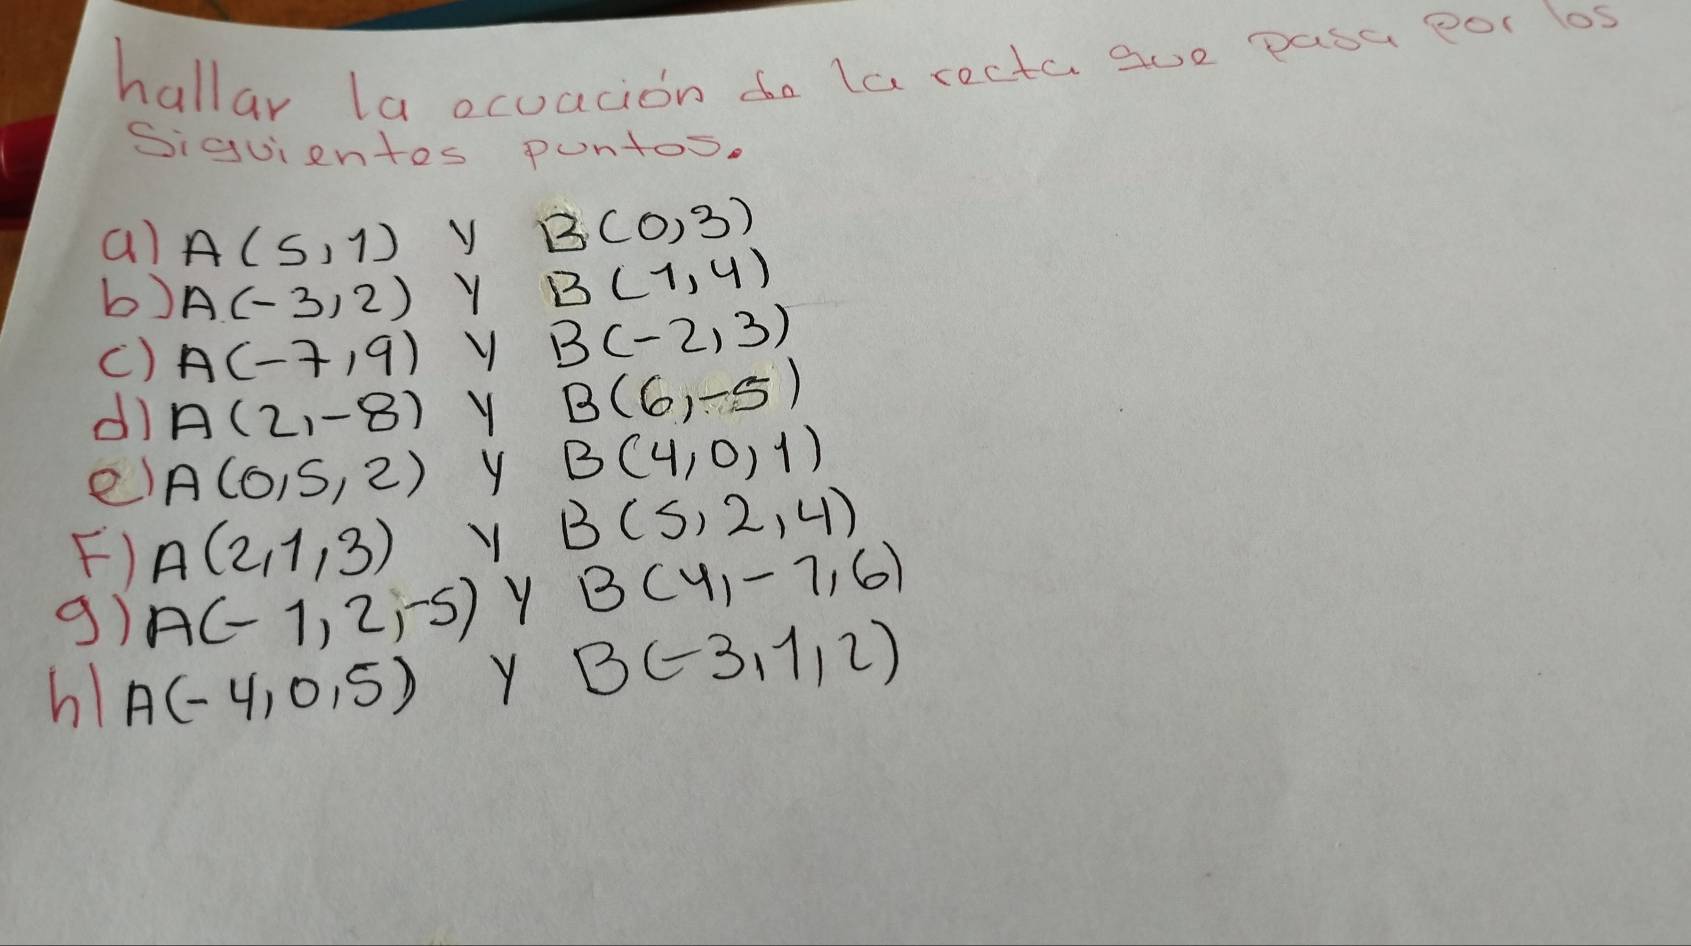 hallar la ecuación de la recta que pasa por los
Siguientes puntos.
a) A(5,1) y B(0,3)
b) A(-3,2) y B(1,4)
c) A(-7,9) y B(-2,3)
d) A(2,-8) y B(6,-5)
e) A(0,5,2) y B(4,0,1)
F) A(2,1,3) y B(5,2,4)
g) A(-1,2,-5) y B(4,-1,6)
h) A(-4,0,5) y B(-3,1,2)